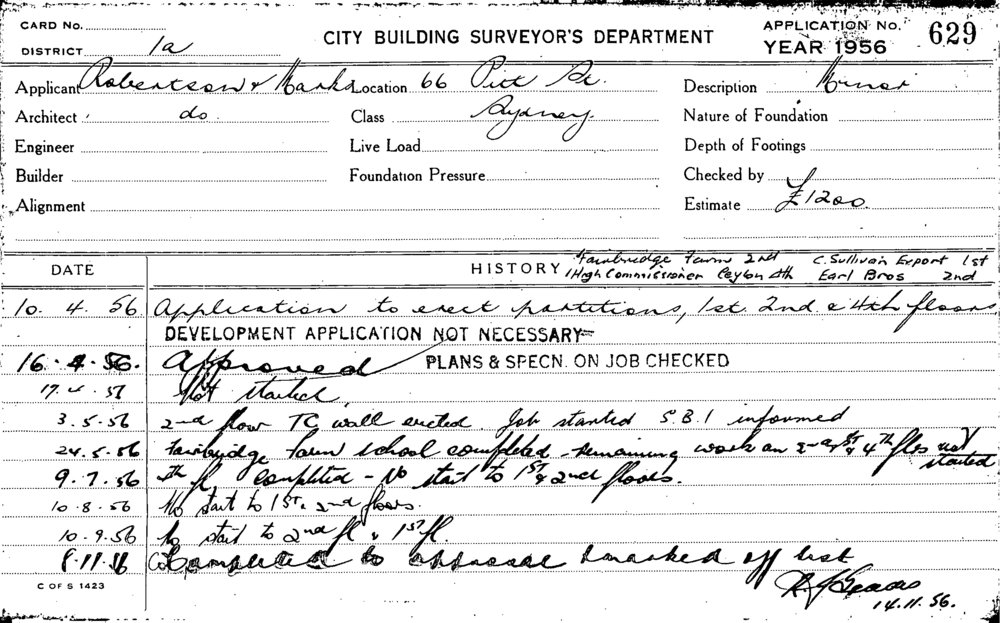 CARD No. CITY BUILDING SURVEYOR'S DEPARTMENT APPLICATION No. 629
DISTRICT 1a YEAR 1956
Applicant Robertson & Marks Location 66 Pitt St. Description Minor
Architect do Class Sydney. Nature of Foundation
Engineer Live Load Depth of Footings
Builder Foundation Pressure Checked by
Alignment Estimate £1200
Fairbridge Farm 2nd C. Sullivan Export 1st
DATE HISTORY High Commissioner Ceylon 4th Earl Bros 2nd
10. 4. 56 Application to erect partitions, 1st. 2nd. & 4th floors
DEVELOPMENT APPLICATION NOT NECESSARY
16. 4. 56. Approved PLANS & SPECN. ON JOB CHECKED
17. 4. 56 Not started.
3. 5. 56 2nd floor TC wall erected. Job started S.B.I informed
24. 5. 56 Fairbridge Farm School completed - remaining work on 2nd 1st & 4th flrs not started
9. 7. 56 4th fl completed - No start to 1st & 2nd floors.
10. 8. 56 No start to 1st & 2nd floors.
10. 9. 56 No start to 2nd fl & 1st fl.
8. 11. 56 Completed to approval & marked off list
C OF S 1423
14. 11. 56.